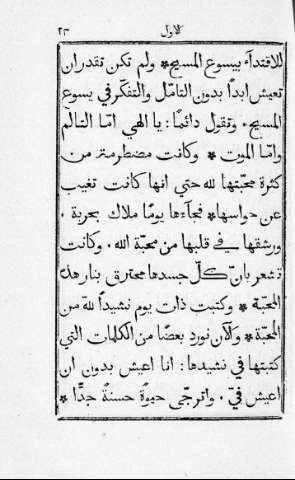 الاول ٢٣
للاقتدآء بيسوع المسيح * ولم تكن تقدران
تعيش ابداً بدون التامّل والتفكّر في يسوع
المسيح . وتقول دائمًا : يا الهي امّا التالّم
وامّا الموت * وكانت مضطرمةً من
كثرة محبّتها لله حتي انها كانت تغيب
عن حواسها * فجآءها يومًا ملاك بحربة .
ورشقها في قلبها من محبّة الله . وكانت
تشعر بانّ كلّ جسدها محترق بنار هذه
المحبّة * وكتبت ذات يوم نشيداً لله من
المحبّة * والآن نورد بعضًا من الكلمات التي
كتبتها في نشيدها : انا اعيش بدون ان
اعيش فيّ . واترجّي حيوةً حسنةً جدًّا *